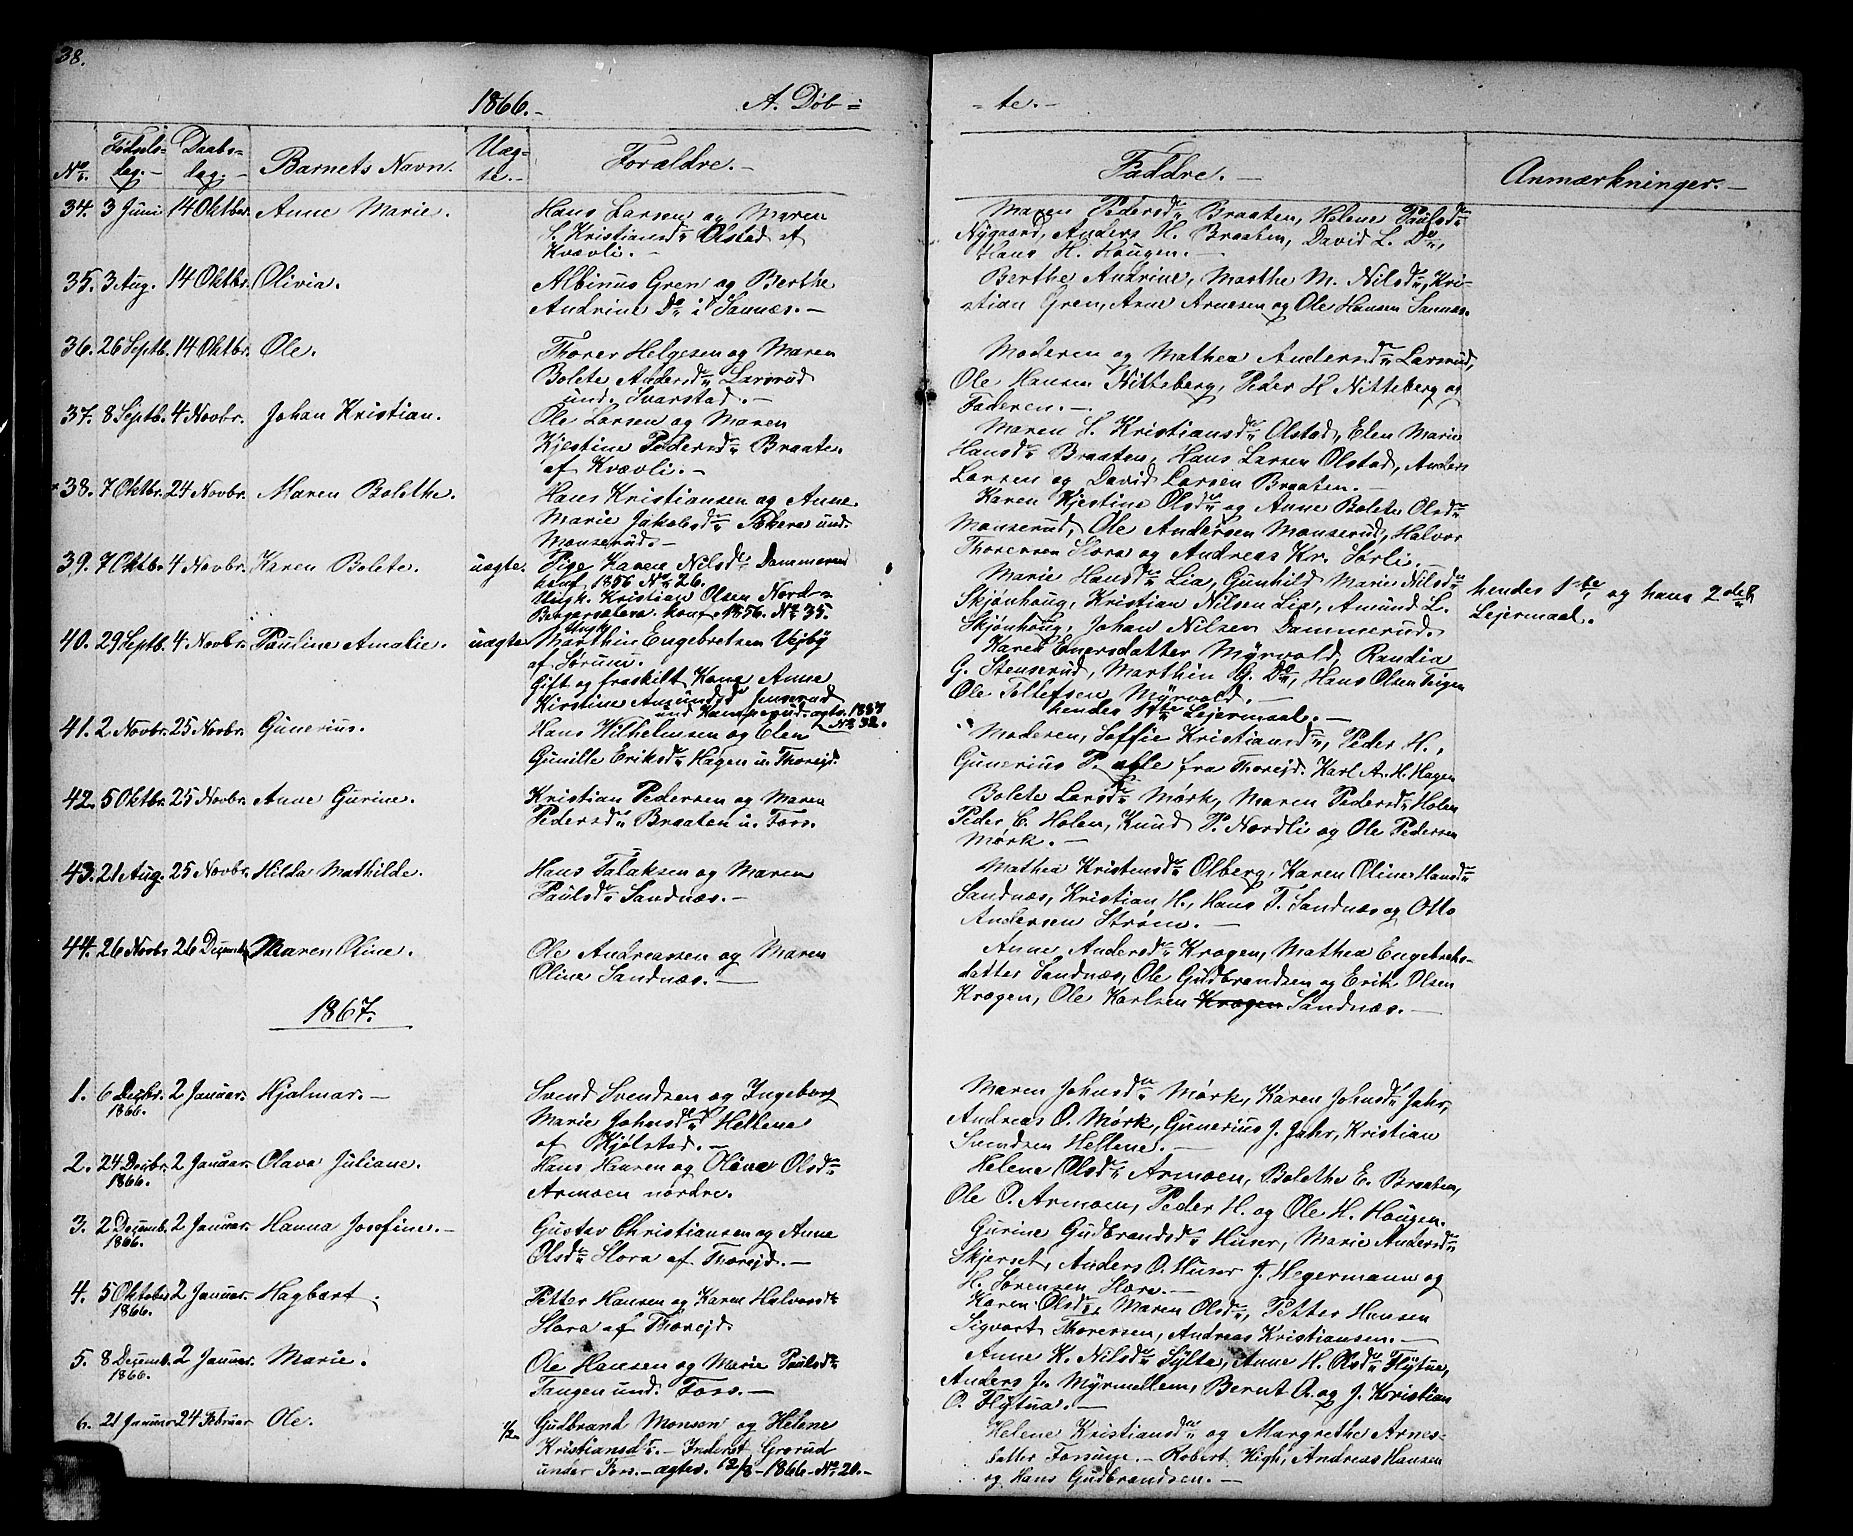 38.
1866.-
A. Døb-
-te.-
No. Fødsels-dag.- Daabs-dag.- Barnets Navn. Uæg-te.- Forældre.-
Faddre.-
Anmærkninger.-
34. 3 Juni 14 Oktbr. Anne Marie.
Hans Larsen og Maren
L. Kristiansdr Olstad af
Kvævli.-
Maren Pedersdr Braaten, Helene Paulsdr
Nygaard, Anders H. Braaten, David L. Do,
Hans H. Haugen.-
35. 3 Aug. 14 Oktbr. Olivia.
Albinus Gren og Berthe
Andrine Do i Sannæs.-
Berthe Andrine, Marthe M. Nilsdr, Kri-
stian Gren, Arne Arnesen og Ole Hansen Sannæs.
36. 26 Septb. 14 Oktbr. Ole.
Thorer Helgesen og Maren
Bolete Andersdr Larsrud
und. Svarstad.-
Moderen og Mathea Andersdr Larsrud,
Ole Hansen Nitteberg, Peder H. Nitteberg og
Faderen.-
37. 8 Septb. 4 Novbr. Johan Kristian.
Ole Larsen og Maren
Kjestine Pedersdr Braaten
af Kvævli.-
Maren L. Kristiansdr Olstad, Elen Marie
Hansdr Braaten, Hans Larsen Olstad, Anders
Larsen og David Larsen Braaten.-
38. 7 Oktbr. 24 Novbr. Maren Bolethe.
Hans Kristiansen og Anne
Marie Jakobsdr und.
Monserud.-
Karen Kjestine Olsdr og Anne Bolete Olsdr
Monserud, Ole Andersen Monserud, Halvor
Thoresen Slora og Andreas Kr. Sørli.-
39. 7 Oktbr. 4 Novbr. Karen Bolete. uægte.
Pige Karen Nilsdr Dammerud
konf. 1856 No 26.
Ungk. Kristian Olsen Nord-
konf. 1856. No 35.
Marie Hansdr Lia, Gunhild Marie Nilsdr
Skjønhoug, Kristian Nilsen Lia, Amund L.
Skjønhoug, Johan Nilsen Dammerud.
hendes 1ste og hans 2det
Lejermaal.
40. 29 Septb. 4 Novbr. Pauline Amalie. uægte
Ungk.
Marthin Engebretsen Vejby
af Sørum.
Gift og fraskilt Kone Anne
Kirstine Amundsdr Jenserud
und
Karen Enersdatter Myrvold, Randia
G. Stenserud, Marthin G. Do, Hans Olsen
Ole Tollefsen Myrvold.-
hendes Lejermaal.-
41. 2 Novbr. 25 Novbr. Gunerius.
Hans Wilhelmsen og Elen
Gunille Eriksdr Hagen u. Thorejd.
Moderen, Soffie Kristiansdr, Peder H.,
Gunerius P. alle fra Thorejd. Karl A. H. Hagen
42. 5 Oktbr. 25 Novbr. Anne Gurine.
Kristian Pedersen og Maren
Pedersdr Braaten u. Fors.
Bolete Larsdr Mørk, Maren Pedersdr Holen
Peder C. Holen, Knud P. Nordli og Ole Pedersen
Mørk.-
43. 21 Aug. 25 Novbr. Hilda Mathilde.
Hans Talaksen og Maren
Paulsdr Sandnæs.-
Mathea Kristensdr Olberg, Karen Oline Hansdr
Sandnæs, Kristian H., Hans T. Sandnæs og Otto
Andersen Strøm.-
44. 26 Novbr. 26 Decemb. Maren Oline.
Ole Andreassen og Maren
Oline Sandnæs.-
Anne Andersdr Kragen, Mathea Engebrets-
datter Sandnæs, Ole Gudbrandsen og Erik Olsen
Kragen, Ole Karlsen Kragen Sandnæs.-
1867.
1. 6 Decbr. 1866. 2 Januar. Hjalmar.-
Svend Svendsen og Ingeborg
Marie Johnsdr Hellene
af Kjølstad.-
Maren Johnsdr Mørk, Karen Johnsdr Jahr,
Andreas O. Mørk, Gunerius J. Jahr, Kristian
Svendsen Hellene.-
2. 24 Decbr. 1866. 2 Januar. Olava Juliane.
Hans Hansen og Oline Olsdr
Armoen nordre.
Helene Olsdr Armoen, Bolethe E. Braaten,
Ole O. Armoen, Peder H. og Ole H. Haugen.
3. 2 Decemb. 1866. 2 Januar. Hanna Josefine.-
Gustav Christiansen og Anne
Olsdr Slora af Thorejd.-
Gurine Gudbrandsdr Huser, Marie Andersdr
Skjerset, Anders O. Huser, J. Hegermann og
H. Sørensen Slora.-
4. 5 Oktober 1866. 2 Januar. Hagbart.
Petter Hansen og Karen Halvorsdr
Slora af Thorejd.
Karen Olsdr, Maren Olsdr, Petter Hansen
Sigvart Thoresen, Andreas Kristiansen.-
5. 8 Decemb. 1866. 2 Januar. Marie.
Ole Hansen og Marie Paulsdr
Tangen und. Fors.-
Anne K. Nilsdr Sylte, Anne H. Olsdr Flytua,
Anders Jn. Myrmellem, Bernt A. og J. Kristian
O. Flytua.-
6. 21 Januar 24 Februar Ole. 1/2
Gudbrand Monsen og Helene
Kristiansdr.- Inderst Grorud
under Fors.- agtev. 12/8-1866-No 20.-
Helene Kristiansdr og Margrethe Arnes-
datter Fossum.- Robert High, Andreas Hansen
og Hans Gudbrandsen.-